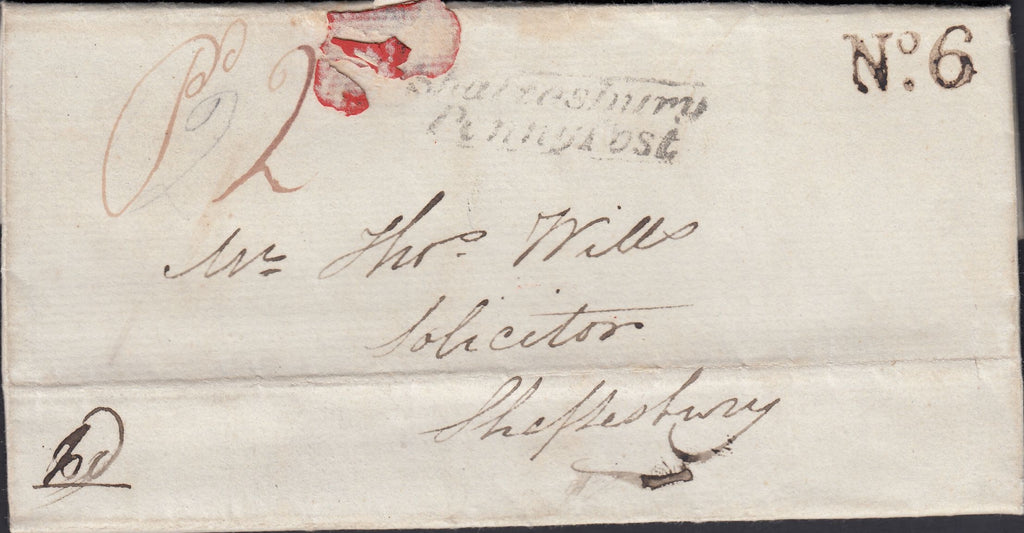 Pd 2
Shaftesbury
Penny Post
No. 6
Mr. Thos. Wills
Solicitor
Sheftesbury
Pd